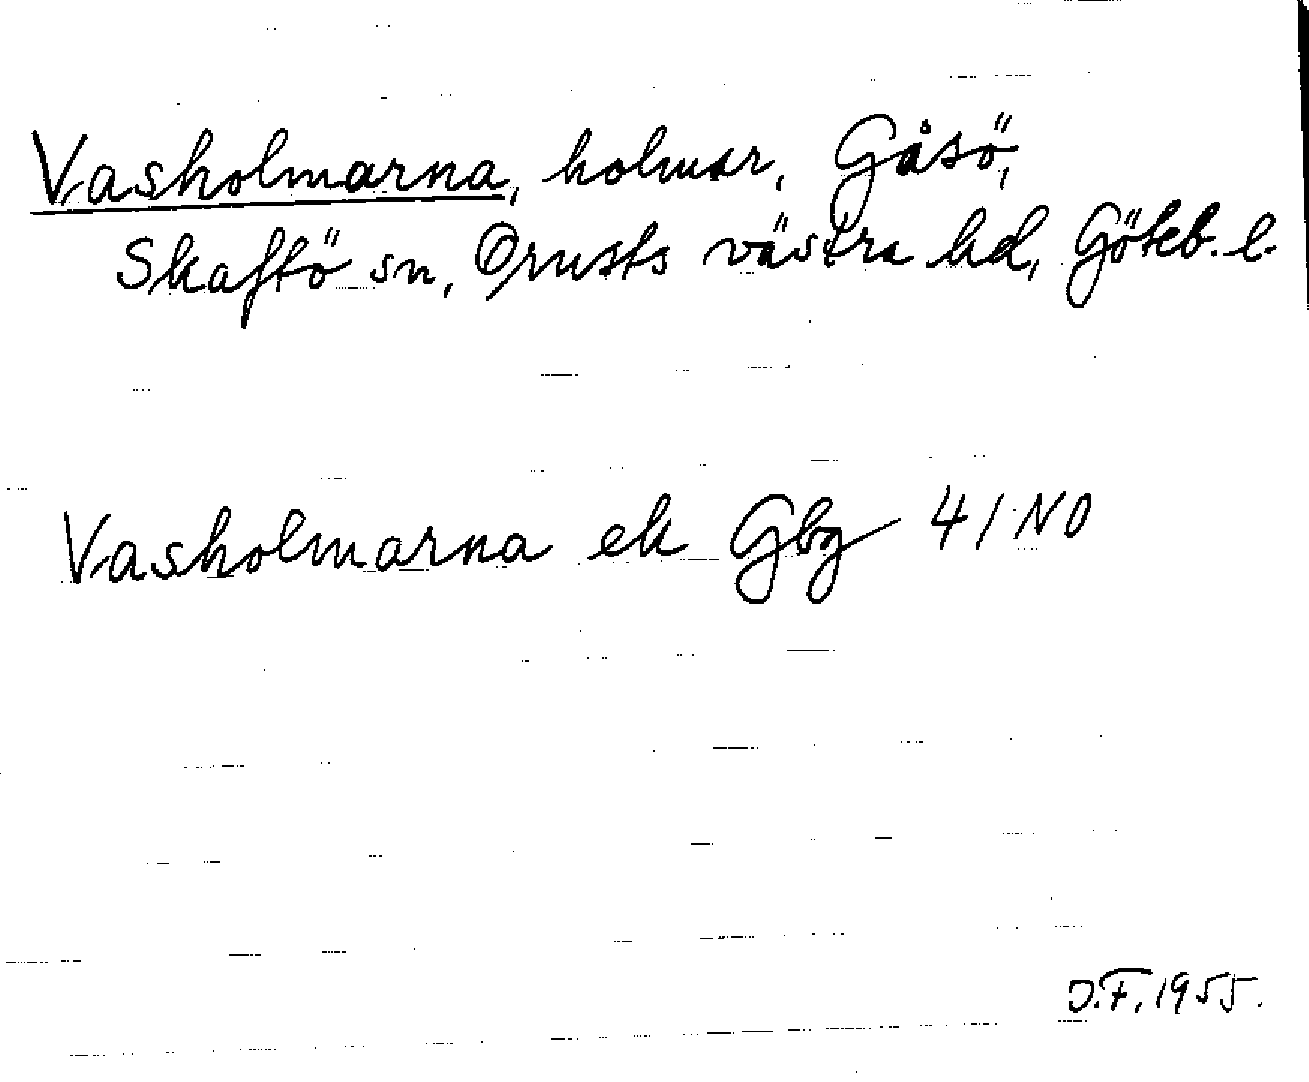 Vasholmarna, holmar, Gåsö,
Skaftö sn, Orusts västra hd, Göteb. l.
Vasholmarna ek Gbg 41 NO
O.F. 1955.